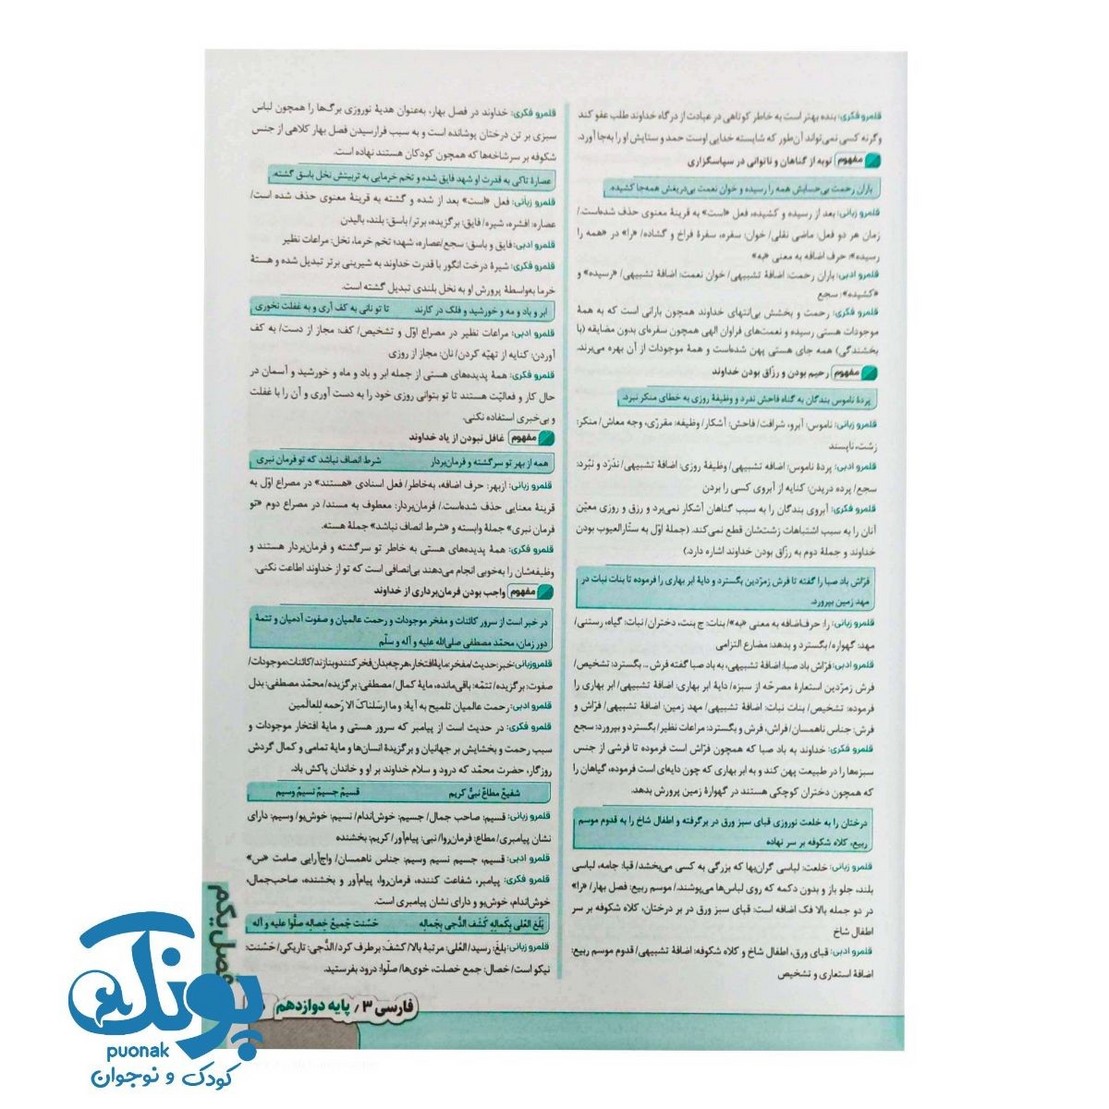 قلمرو فکری: بنده بهتر است به خاطر کوتاهی در عبادت از درگاه خداوند طلب عفو کند
وگرنه کسی نمی‌تواند آن‌طور که شایسته خدایی اوست حمد و ستایش او را به‌جا آورد.
مفهوم توبه از گناهان و ناتوانی در سپاسگزاری
باران رحمت بی‌حسابش همه را رسیده و خوان نعمت بی‌دریغش همه‌جا کشیده.
قلمرو زبانی: بعد از رسیده و کشیده، فعل «است» به قرینهٔ معنوی حذف شده‌است./
زمان هر دو فعل: ماضی نقلی/ خوان: سفره، سفرهٔ فراخ و گشاده/ «را» در «همه را
رسیده»: حرف اضافه به معنی «به»
قلمرو ادبی: باران رحمت: اضافهٔ تشبیهی/ خوان نعمت: اضافهٔ تشبیهی/ «رسیده» و
«کشیده»: سجع
قلمرو فکری: رحمت و بخشش بی‌انتهای خداوند همچون بارانی است که به همهٔ
موجودات هستی رسیده و نعمت‌های فراوان الهی همچون سفره‌ای بدون مضایقه (با
بخشندگی) همه جای هستی پهن شده‌است و همهٔ موجودات از آن بهره می‌برند.
مفهوم رحیم بودن و رزّاق بودن خداوند
پردهٔ ناموس بندگان به گناه فاحش ندرد و وظیفهٔ روزی به خطای منکر نبرد.
قلمرو زبانی: ناموس: آبرو، شرافت/ فاحش: آشکار/ وظیفه: مقرّری، وجه معاش/ منکر:
زشت، ناپسند
قلمرو ادبی: پردهٔ ناموس: اضافه تشبیهی/ وظیفهٔ روزی: اضافهٔ تشبیهی/ ندَرَد و نبُرد:
سجع/ پرده دریدن: کنایه از آبروی کسی را بردن
قلمرو فکری: آبروی بندگان را به سبب گناهان آشکار نمی‌برد و رزق و روزی معیّن
آنان را به سبب اشتباهات زشتشان قطع نمی‌کند. (جملهٔ اوّل به ستّارالعیوب بودن
خداوند و جملهٔ دوم به رزّاق بودن خداوند اشاره دارد.)
فرّاش باد صبا را گفته تا فرش زمرّدین بگسترد و دایهٔ ابر بهاری را فرموده تا بنات نبات در
مهد زمین بپرورد.
قلمرو زبانی: را: حرف‌اضافه به معنی «به»/ بنات: ج بنت، دختران/ نبات: گیاه، رستنی/
مهد: گهواره/ بگسترد و بدهد: مضارع التزامی
قلمرو ادبی: فرّاش باد صبا: اضافهٔ تشبیهی، به باد صبا گفته فرش ... بگسترد: تشخیص/
فرش زمرّدین استعارهٔ مصرحّه از سبزه/ دایهٔ ابر بهاری: اضافهٔ تشبیهی/ ابر بهاری را
فرموده: تشخیص/ بنات نبات: اضافهٔ تشبیهی/ مهد زمین: اضافهٔ تشبیهی/ فرّاش و
فرش: جناس ناهمسان/ فراش، فرش و بگسترد: مراعات نظیر/ بگسترد و بپرورد: سجع
قلمرو فکری: خداوند به باد صبا که همچون فرّاش است فرموده تا فرشی از جنس
سبزه‌ها را در طبیعت پهن کند و به ابر بهاری که چون دایه‌ای است فرموده، گیاهان را
که همچون دختران کوچکی هستند در گهوارهٔ زمین پرورش بدهد.
درختان را به خلعت نوروزی قبای سبز ورق در برگرفته و اطفال شاخ را به قدوم موسم
ربیع، کلاه شکوفه بر سر نهاده
قلمرو زبانی: خلعت: لباسی گران‌بها که بزرگی به کسی می‌بخشد/ قبا: جامه، لباسی
بلند، جلو باز و بدون دکمه که روی لباس‌ها می‌پوشند./ موسم ربیع: فصل بهار/ «را»
در دو جمله بالا فک اضافه است: قبای سبز ورق در بر درختان، کلاه شکوفه بر سر
اطفال شاخ
قلمرو ادبی: قبای ورق، اطفال شاخ و کلاه شکوفه: اضافهٔ تشبیهی/ قدوم موسم ربیع:
اضافهٔ استعاری و تشخیص
قلمرو فکری: خداوند در فصل بهار، به‌عنوان هدیهٔ نوروزی برگ‌ها را همچون لباس
سبزی بر تن درختان پوشانده است و به سبب فرارسیدن فصل بهار کلاهی از جنس
شکوفه بر سرشاخه‌ها که همچون کودکان هستند نهاده است.
عصارهٔ تاکی به قدرت او شهد فایق شده و تخم خرمایی به تربیتش نخل باسق گشته.
قلمرو زبانی: فعل «است» بعد از شده و گشته به قرینهٔ معنوی حذف شده است/
عصاره: افشره، شیره/ فایق: برگزیده، برتر/ باسق: بلند، بالیدن
قلمرو ادبی: فایق و باسق: سجع/عصاره، شهد؛ تخم خرما، نخل: مراعات نظیر
قلمرو فکری: شیرهٔ درخت انگور با قدرت خداوند به شیرینی برتر تبدیل شده و هستهٔ
خرما به‌واسطهٔ پرورش او به نخل بلندی تبدیل گشته است.
ابر و باد و مه و خورشید و فلک در کارند تا تو نانی به کف آری و به غفلت نخوری
قلمرو ادبی: مراعات نظیر در مصراع اوّل و تشخیص/ کف: مجاز از دست/ به کف
آوردن: کنایه از تهیّه کردن/ نان: مجاز از روزی
قلمرو فکری: همهٔ پدیده‌های هستی از جمله ابر و باد و ماه و خورشید و آسمان در
حال کار و فعالیّت هستند تا تو بتوانی روزی خود را به دست آوری و آن را با غفلت
و بی‌خبری استفاده نکنی.
مفهوم غافل نبودن از یاد خداوند
همه از بهر تو سرگشته و فرمان‌بردار شرط انصاف نباشد که تو فرمان نبری
قلمرو زبانی: ازبهر: حرف اضافه، به‌خاطر/ فعل اسنادی «هستند» در مصراع اوّل به
قرینهٔ معنایی حذف شده‌است./ فرمان‌بردار: معطوف به مسند/ در مصراع دوم «تو
فرمان نبری» جملهٔ وابسته و «شرط انصاف نباشد» جملهٔ هسته.
قلمرو فکری: همهٔ پدیده‌های هستی به خاطر تو سرگشته و فرمان‌بردار هستند و
وظیفه‌شان را به‌خوبی انجام می‌دهند بی‌انصافی است که تو از خداوند اطاعت نکنی.
مفهوم واجب بودن فرمان‌برداری از خداوند
در خبر است از سرور کائنات و مفخر موجودات و رحمت عالمیان و صفوت آدمیان و تتمهٔ
دور زمان، محمّد مصطفی صلی‌الله علیه و آله و سلّم
قلمرو زبانی: خبر: حدیث/ مفخر: مایهٔ افتخار، هرچه بدان فخر کنند و بنازند/ کائنات: موجودات/
صفوت: برگزیده/ تتمّه: باقی‌مانده، مایهٔ کمال/ مصطفی: برگزیده/ محمّد مصطفی: بدل
قلمرو ادبی: رحمت عالمیان تلمیح به آیهٔ: و ما ارسَلناکَ الا رَحمه للِعالَمین
قلمرو فکری: در حدیث است از پیامبر که سرور هستی و مایهٔ افتخار موجودات و
سبب رحمت و بخشایش بر جهانیان و برگزیدهٔ انسان‌ها و مایهٔ تمامی و کمال گردش
روزگار، حضرت محمّد که درود و سلام خداوند بر او و خاندان پاکش باد.
شفیعٌ مطاعٌ نبیٌ کریم قسیمٌ جسیمٌ نسیمٌ وسیم
قلمرو زبانی: قسیم: صاحب جمال/ جسیم: خوش‌اندام/ نسیم: خوش‌بو/ وسیم: دارای
نشان پیامبری/ مطاع: فرمان‌روا/ نبی: پیام‌آور/ کریم: بخشنده
قلمرو ادبی: قسیم، جسیم نسیم وسیم: جناس ناهمسان/ واج‌آرایی صامت «س»
قلمرو فکری: پیامبر، شفاعت کننده، فرمان‌روا، پیام‌آور و بخشنده، صاحب‌جمال،
خوش‌اندام، خوش‌بو و دارای نشان پیامبری است.
بَلَغَ العُلی بِکَمالِهِ کَشَفَ الدُّجی بِجَمالِهِ حَسُنَت جَمیعُ خِصالِهِ صلّوا علیه و آله
قلمرو زبانی: بلغ: رسید/ العُلی: مرتبهٔ بالا/ کشف: برطرف کرد/ الدُّجی: تاریکی/ حَسُنت:
نیکو است/ خصال: جمع خصلت، خوی‌ها/ صلّوا: درود بفرستید.
فصل یکم
فارسی ۳/ پایه دوازدهم
پونک
puonak
کودک و نوجوان